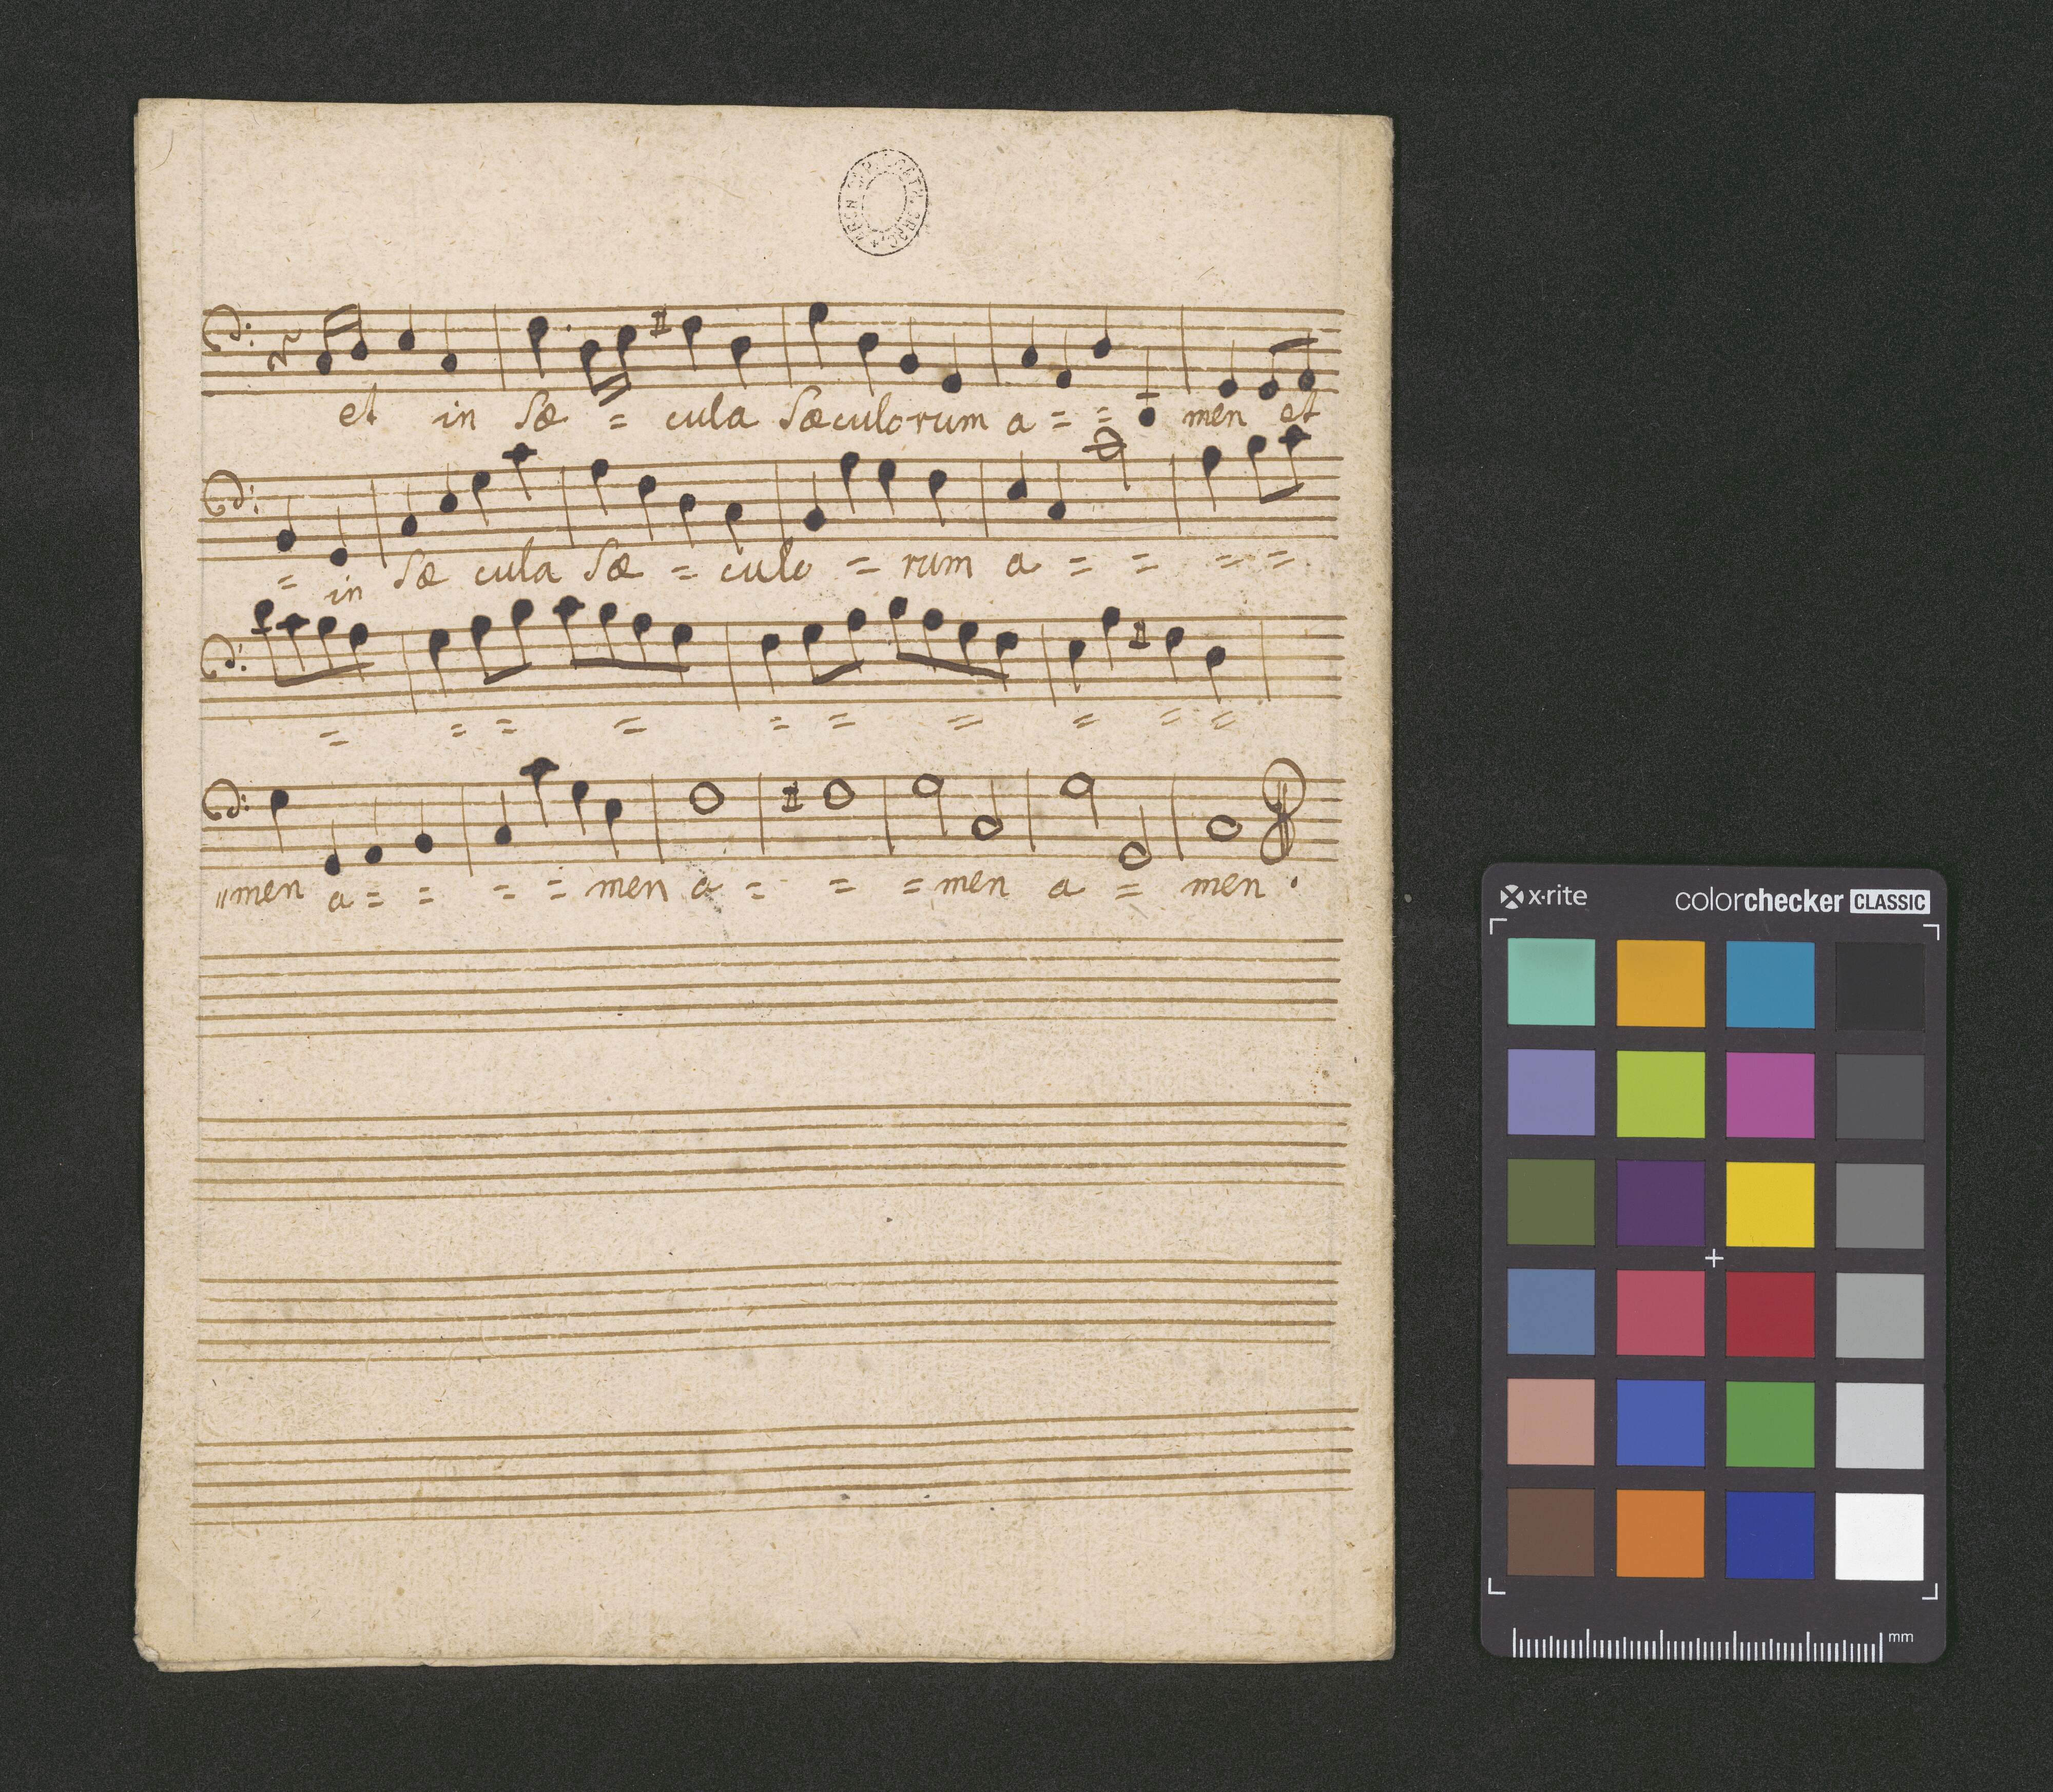 et in sæ = cula sæculorum a = = men et
= in sæ cula sæ = culo = rum a = = = =
= = = = = = = = = =
"men a = = = = men a = = = men a = men .
x·rite colorchecker CLASSIC
mm